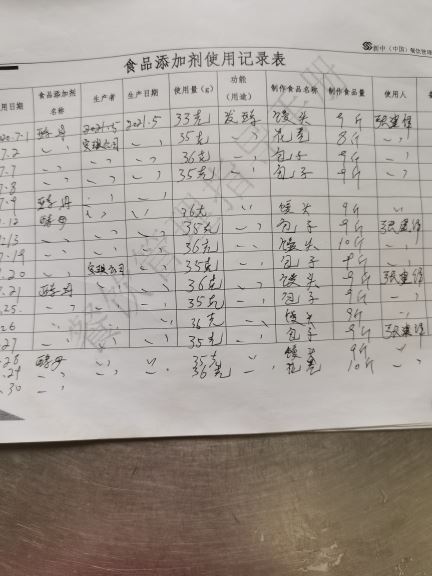 新中(中国)餐饮管理
食品添加剂使用记录表
用日期 食品添加剂名称 生产者 生产日期 使用量(g) 功能(用途) 制作食品名称 制作食品量 使用人
20.7.1 酵母 2021.5 2021.5 33克 发酵 馒头 9斤
7.2 〃 安琪公司 〃 35克 〃 花卷 8斤 〃
7.7 〃 〃 〃 36克 〃 包子 9斤 〃
7.8 〃 〃 〃 35克 〃 包子 9斤 〃
7.9 酵母 〃 〃
7.12 酵母 〃 〃 36克 〃 馒头 9斤 〃
7.13 〃 〃 〃 35克 〃 包子 9斤
7.19 〃 〃 〃 36克 〃 馒头 10斤 〃
7.20 〃 安琪公司 〃 35克 〃 包子 9斤 〃
7.21 酵母 〃 〃 36克 〃 馒头 9斤
25. 〃 〃 〃 35克 〃 包子 9斤 〃
26 〃 〃 〃 36克 〃 馒头 9斤
27 〃 〃 〃 35克 〃 包子 9斤
28 酵母 〃 〃 35克 〃 馒头 9斤 〃
29 〃 〃 〃 36克 〃 花卷 10斤 〃
30 〃